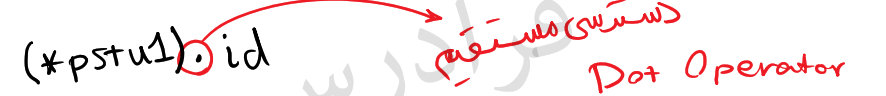 (*pstu1).id
دسترسی مستقیم
Dot Operator
فرادرس